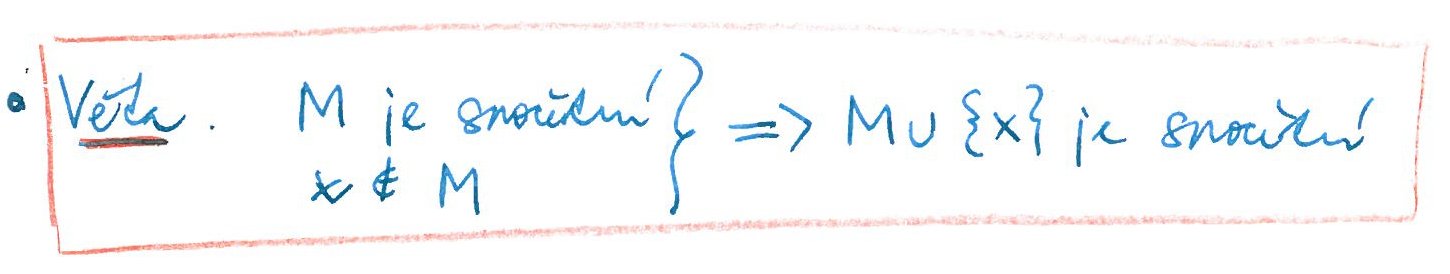 Věta. M je spočetná } => M ∪ {x} je spočetná
x ∉ M